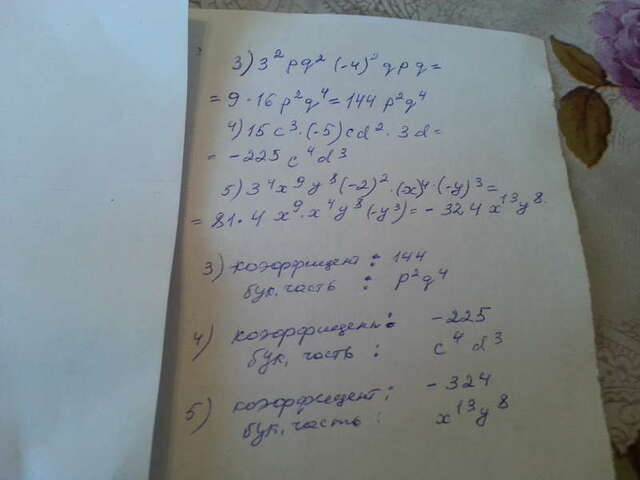 3) 3² p q² (-4)² q p q =
= 9 · 16 p² q⁴ = 144 p² q⁴
4) 15 c³ · (-5) c d² · 3 d =
= - 225 c⁴ d³
5) 3⁴ x⁹ y⁸ (-2)² · (x)⁴ · (-y)³ =
= 81 · 4 x⁹ · x⁴ y⁸ (-y³) = - 324 x¹³ y⁸.
3) коэффицент : 144
бук. часть : p² q⁴
4) коэффицент : - 225
бук. часть : c⁴ d³
5) коэффицент : - 324
бук. часть : x¹³ y⁸